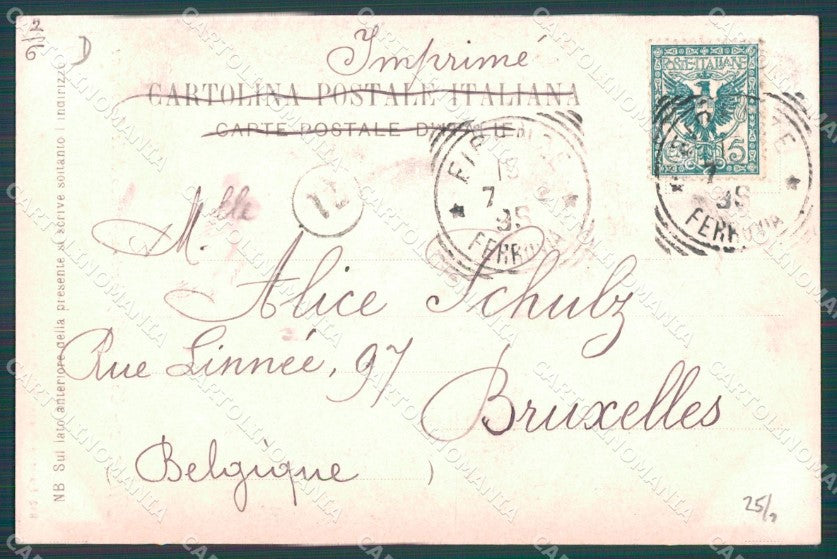 2/6 D
Imprimé
CARTOLINA POSTALE ITALIANA
CARTE POSTALE D'ITALIE
POSTE ITALIANE
5
FIRENZE
7
FERROVIA
FERROVIA
12
Mlle
M. Alice Schulz
Rue Linnée, 97
Bruxelles
(Belgique)
NB Sul lato anteriore della presente si scrive soltanto l'indirizzo
CARTOLINOMANIA